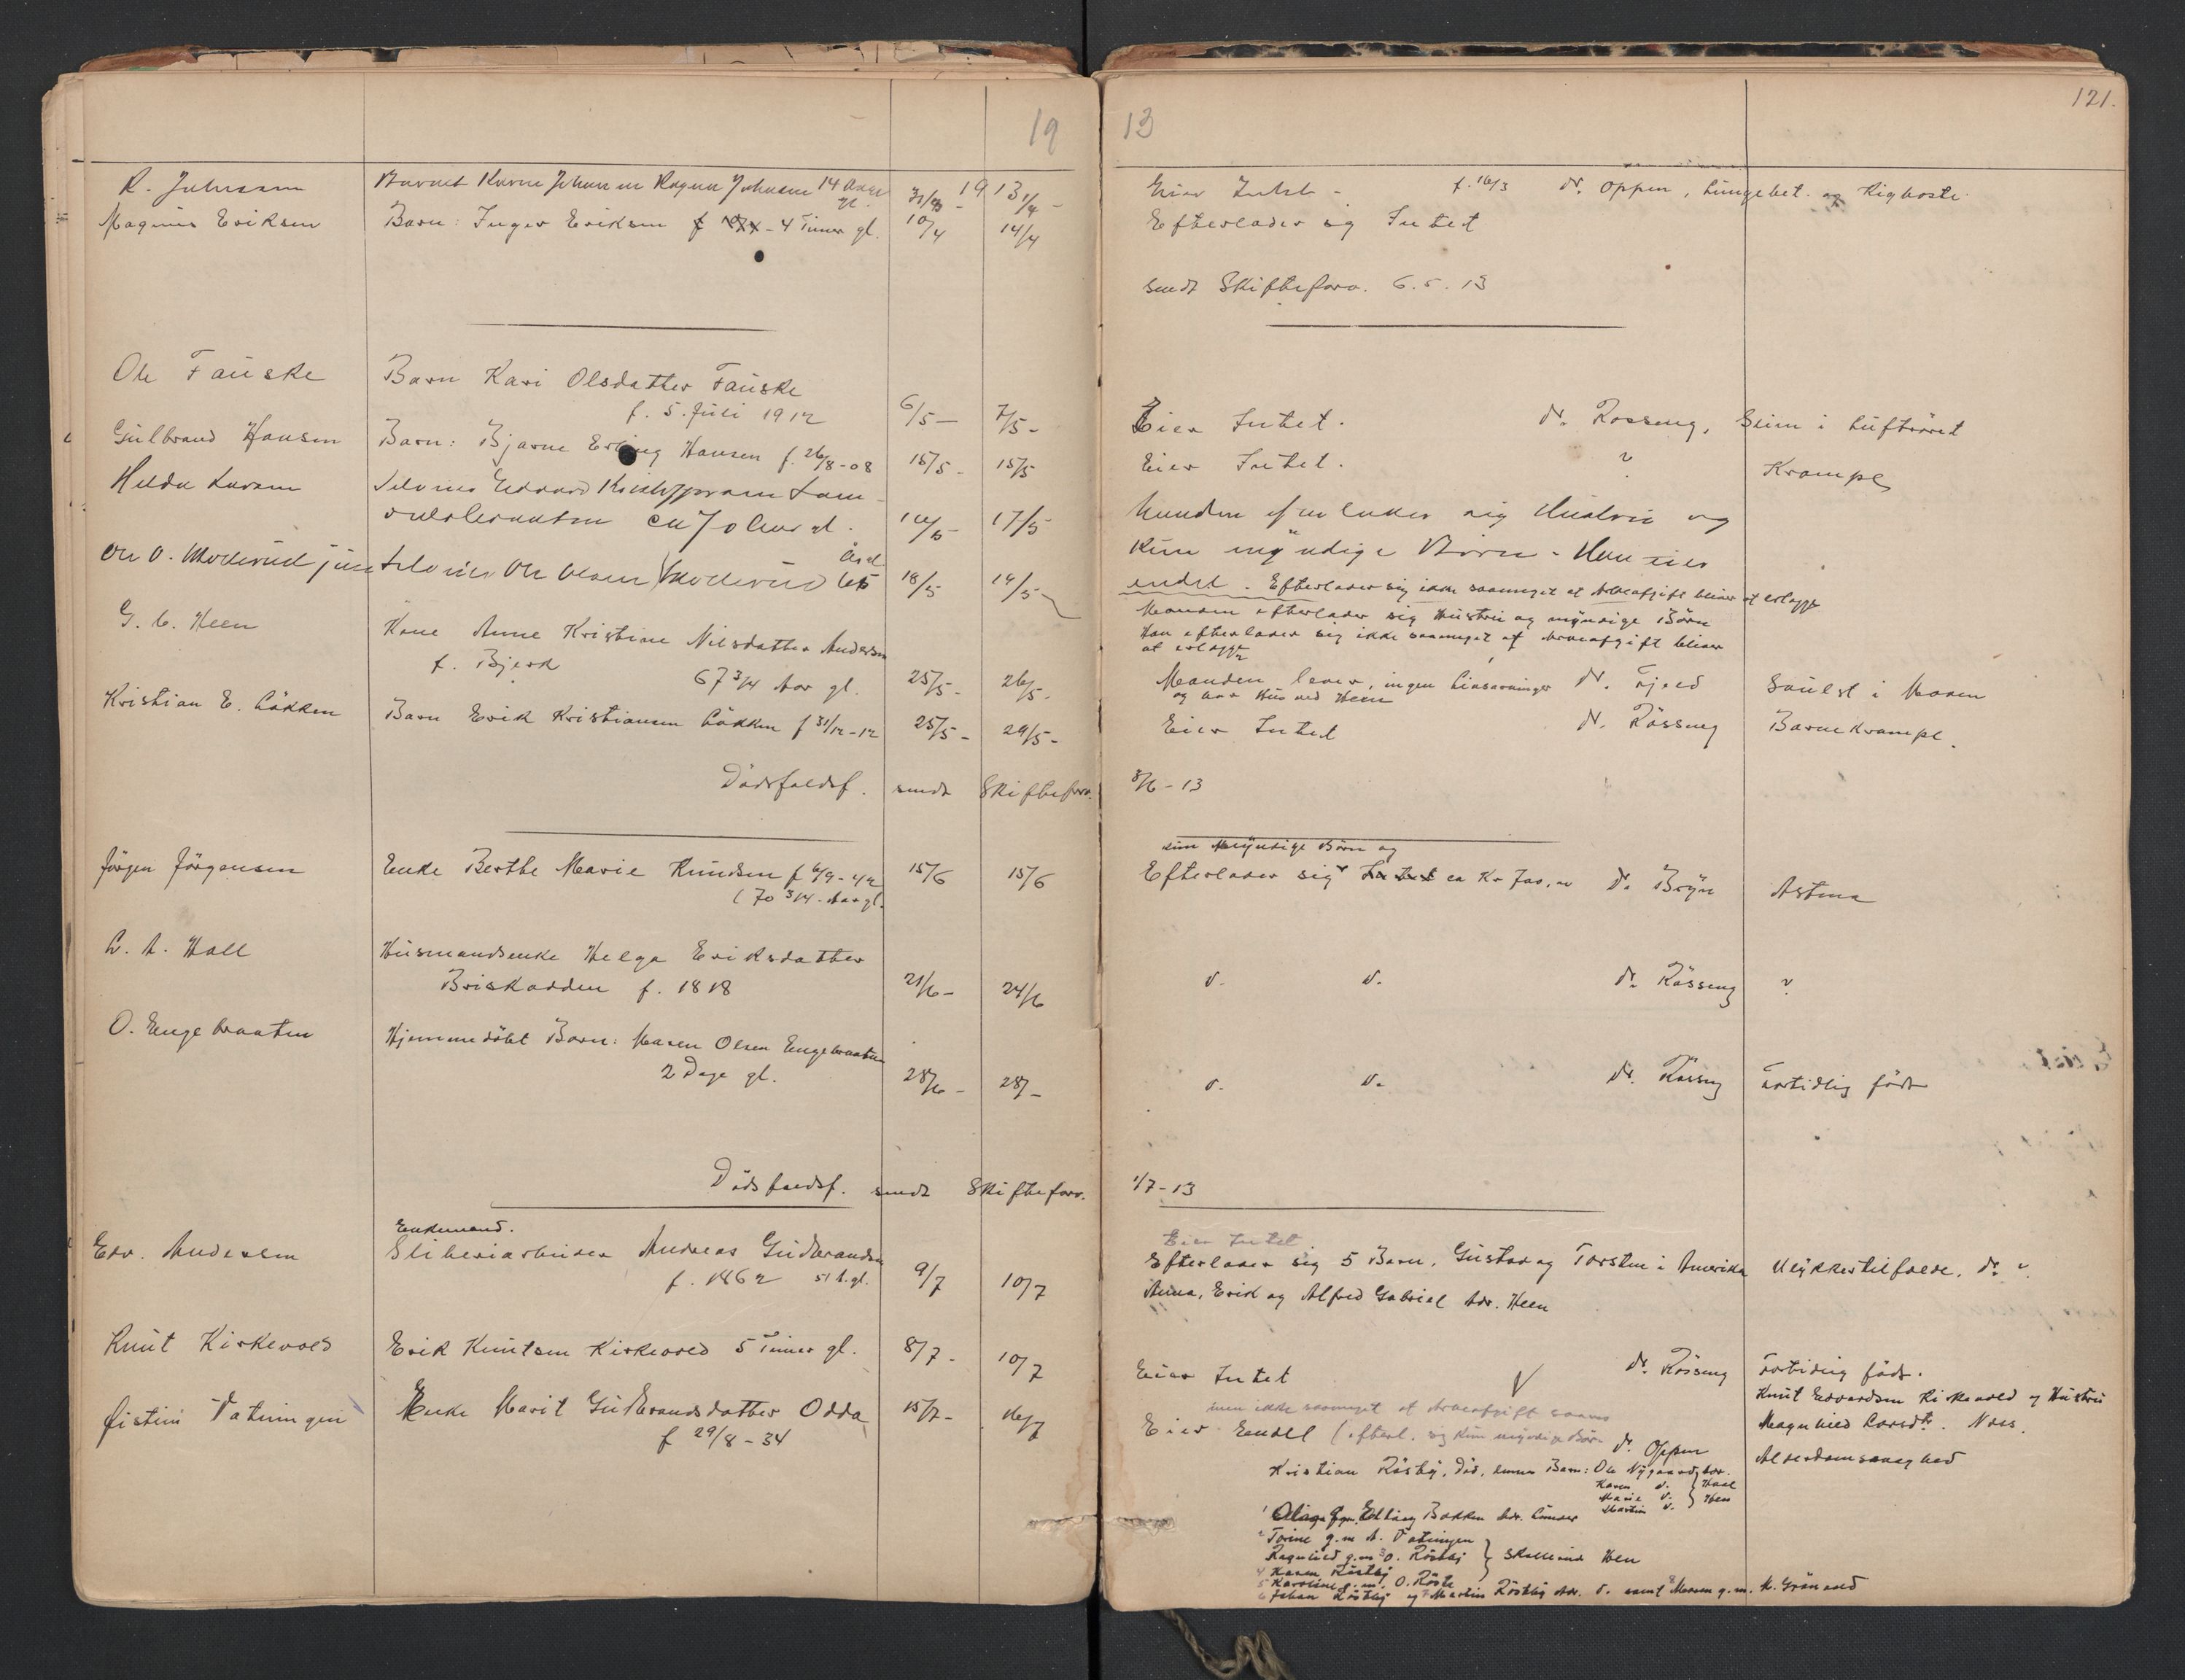 19
R. Johnsen Barnet Karen Johanne Ragna Johnsen 14 Dage gl. 31/3 - 1913 1/4 -
Magnus Eriksen Barn: Inger Eriksen f - 4 Timer gl. 10/4 14/4
Ole Fauske Barn Kari Olsdatter Fauske
f. 5. Juli 1912 6/5 — 7/5 -
Gulbrand Hansen Barn: Bjarne Erling Hansen f. 26/8-08 15/5 - 15/5
Hilda Larsen Selveier Edvard Kristoffersen
ca 70 Aar gl. 16/5 - 17/5
Ole O. Moderud jun Selveier Ole Olsen Moderud 65 18/5 19/5
G. C. Heen Kone Anne Kristine Nilsdatter Andersen
f. Bjerd 67 3/4 Aar gl. 25/5 - 26/5.
Kristian E. Løkken Barn Erik Kristiansen Løkken f 31/12-12 25/5 - 29/5 -
Dødsfaldsf. sendt Skifteforv.
Jørgen Jørgensen Enke Berthe Marie Knudsen f 6/9-42 15/6 15/6
(70 3/4 Aar gl.
L. A. Hall Husmandsenke Helga Eriksdatter
Briskodden f. 1818 21/6 - 24/6
O. Engebraaten Hjemmedøbt Barn: Maren Olsen Engebraaten
2 Dage gl. 28/6 - 28/ -
Dødsfaldsf. sendt Skifteforv.
Enkemand.
Edv. Andersen Sliberiarbeider Andreas Gudbrandsen
f. 1862 51 A. gl. 9/7 10/7
Knut Kirkevold Erik Knutsen Kirkevold 5 Timer gl. 8/7 - 10/7
Øistein Vatningen Enke Marit Gudbrandsdatter Odda 15/7 - 16/7
f 29/8-34
13 121.
Eier Intet - f. 16/3 Dr. Oppen, Lungebet. og Kighoste.
Efterlader sig Intet
sendt Skifteforv. 6.5.13
Eier Intet. Dr. Rosseng, Slim i Luftrøret
Eier Intet. " Krampe
Manden efterlader sig Hustru og
Kun myndige Børn - Han eier
endel. Efterlader sig ikke saameget at Arveafgift bliver at erlægge
Manden efterlader sig Hustru og myndige Børn
Han efterlader sig ikke saameget at Arveafgift bliver
at erlægge
Manden lever, ingen Livsarvinger Dr. Fjeld Saulst i Maven
og har Hus ved Heen
Eier Intet Dr. Røsseng Barnekrampe.
3/6-13
sin Myndige Børn og
Efterlader sig Intet ca Kr 700,00 Dr. Bryn Astma
d. d. Dr. Røsseng "
d. d. Dr. Røsseng Fortidlig født
1/7-13
Eier Intet
Efterlader sig 5 Barn, Gustav og Torsten i Amerika Ulykkestilfælde. Dr. "
Anna, Erik og Alfred Gabriel Adr. Heen
Eier Intet Dr. Røsseng Fortidlig født.
Knut Edvardsen Kirkevold og Hustru
men ikke saameget at Arveafgift svares Magnhild Larsdtr. Næs.
Eier Endel (efterl. sig kun myndige Børn Dr. Oppen Alderdomssvaghed
Kristian Røsby, død, hennes Barn: Ole Nygaard, bor.
Karen d. } Hval
Marie d. } Heen
Martin d.
1 Olia g.m. Elling Bakken Adr. Lunder
2 Torine g.m A. Vatningen
Ragnhild g.m 3 O. Røsby } Skollerud Heen
4 Karen Røstby
5 Karoline g.m. O. Røste
6 Johan Røstby og 7 Martin Røstby Adr. d. samt 8 Maren g.m. K. Grønvold